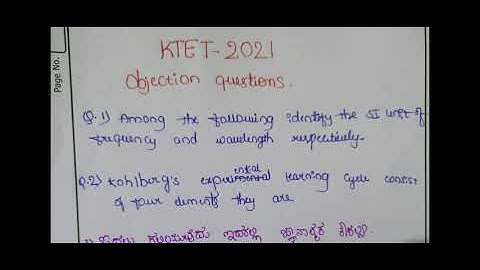 Page No.
KTET-2021
Objection questions.
Q.1) Among the following identify the SI unit of
frequency and wavelength respectively.
Q.2) Kohlburg's experiential learning cycle consist
of four elements they are